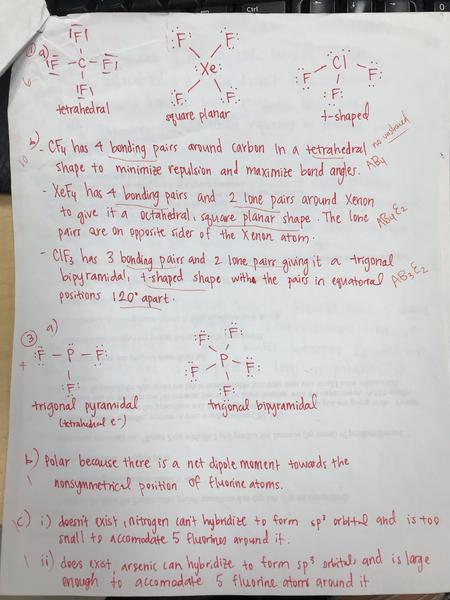 Ctrl
① a)
F F Xe F F
F C F
F Cl F
F F F F
tetrahedral square planar t-shaped
6
b) - CF4 has 4 bonding pairs around carbon in a tetrahedral no unshared
10 shape to minimize repulsion and maximize bond angles. AB4
- XeF4 has 4 bonding pairs and 2 lone pairs around Xenon
to give it a octahedral, square planar shape. The lone AB4E2
pairs are on opposite sides of the Xenon atom.
- ClF3 has 3 bonding pairs and 2 lone pairs giving it a trigonal
bipyramidal, t-shaped shape with the pairs in equatorial AB3E2
positions 120° apart.
③ a)
4 F - P - F F F
F F P F
F
trigonal pyramidal trigonal bipyramidal
(tetrahedral e-)
b) Polar because there is a net dipole moment towards the
1 nonsymmetrical position of fluorine atoms.
c) i) doesn't exist, nitrogen can't hybridize to form sp3 orbital and is too
1 small to accomodate 5 fluorines around it.
1 ii) does exist, arsenic can hybridize to form sp3 orbitals, and is large
enough to accomodate 5 fluorine atoms around it